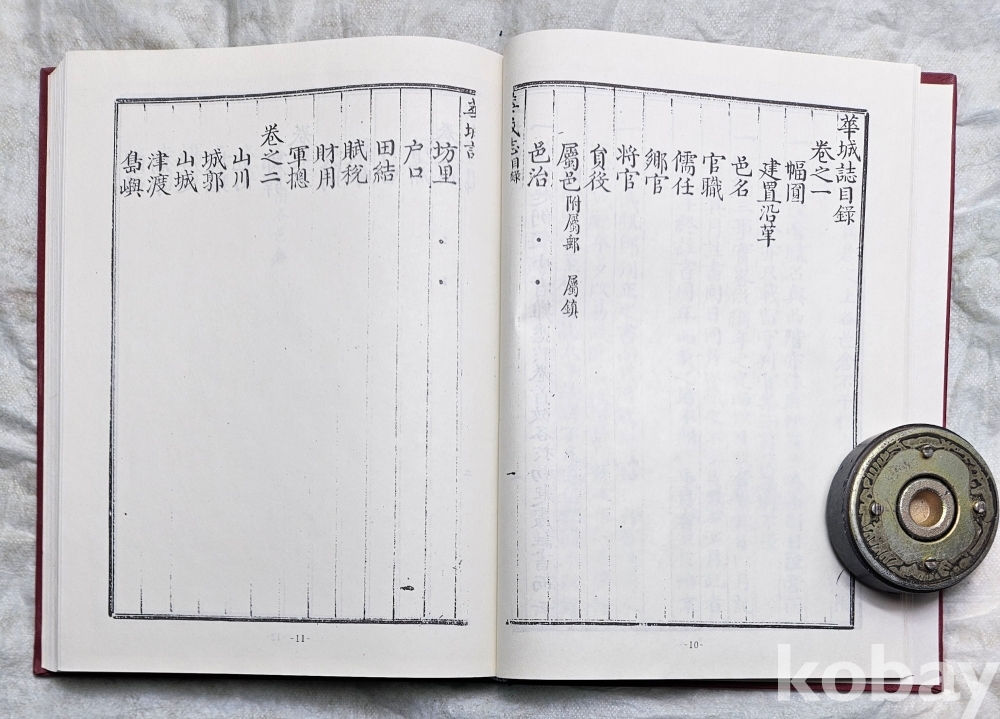 華城誌目録
卷之一
幅圓
建置沿革
邑名
官職
儒任
鄉官
將官
員役
屬邑附屬郵 屬鎮
邑治
華城誌目録
-10-
坊里
户口
田結
賦稅
財用
軍摠
卷之二
山川
城郭
山城
津渡
島嶼
-11-
kobay